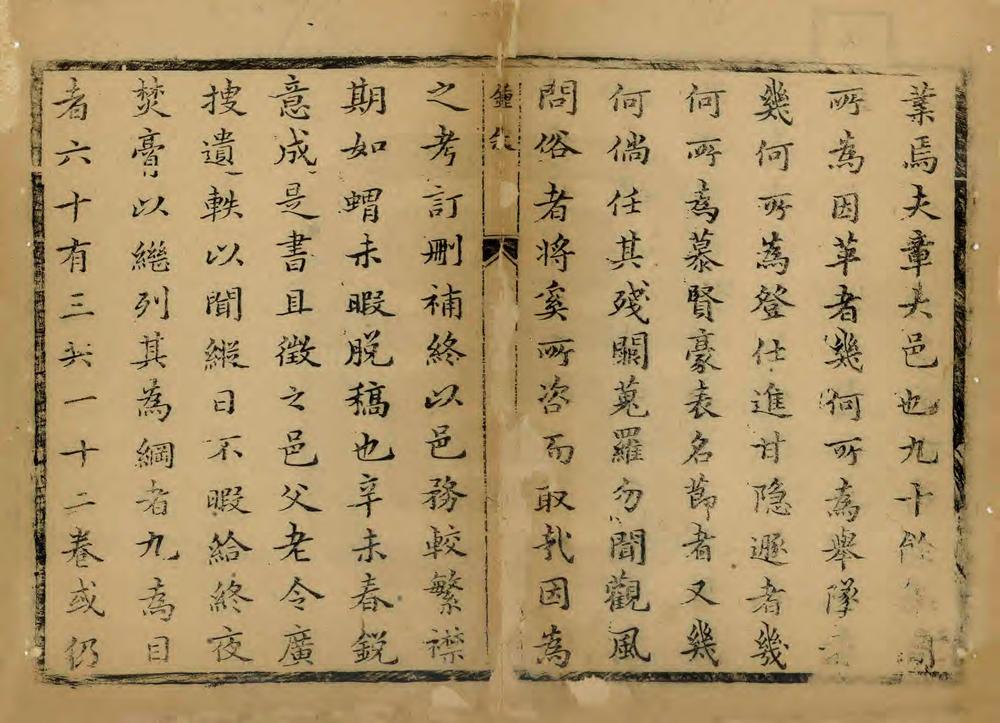 葉焉夫章大邑也九十餘年間
所為因革者幾何所為舉墜
幾何所為登仕進甘隐遯者幾
何所為慕賢豪表名節者又幾
何倘任其殘闕蒐羅勿聞觀風
問俗者将奚所咨而取哉因為
鍾
之考訂刪補終以邑務較繁襟
期如蝟未暇脱稿也辛未春鋭
意成是書且徵之邑父老令廣
捜遺軼以聞縱日不暇給終夜
焚膏以繼列其為綱者九為目
者六十有三共一十二卷或仍